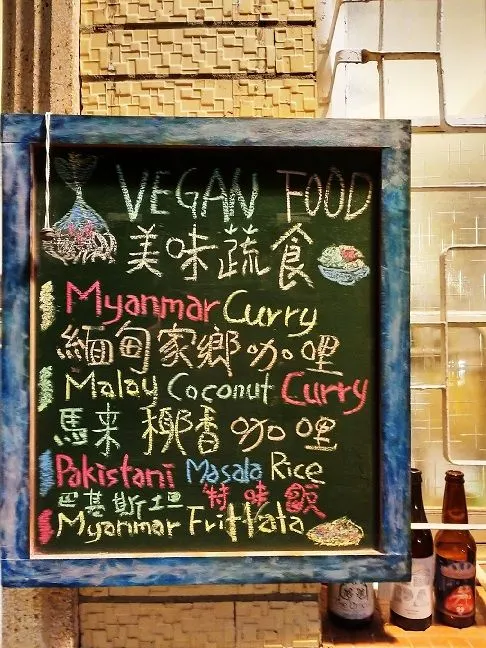 VEGAN FOOD
美味蔬食
Myanmar Curry
緬甸家鄉咖哩
Malay Coconut Curry
馬来 椰香咖哩
Pakistani Masala Rice
巴基斯土旦 特味飯
Myanmar Frittata